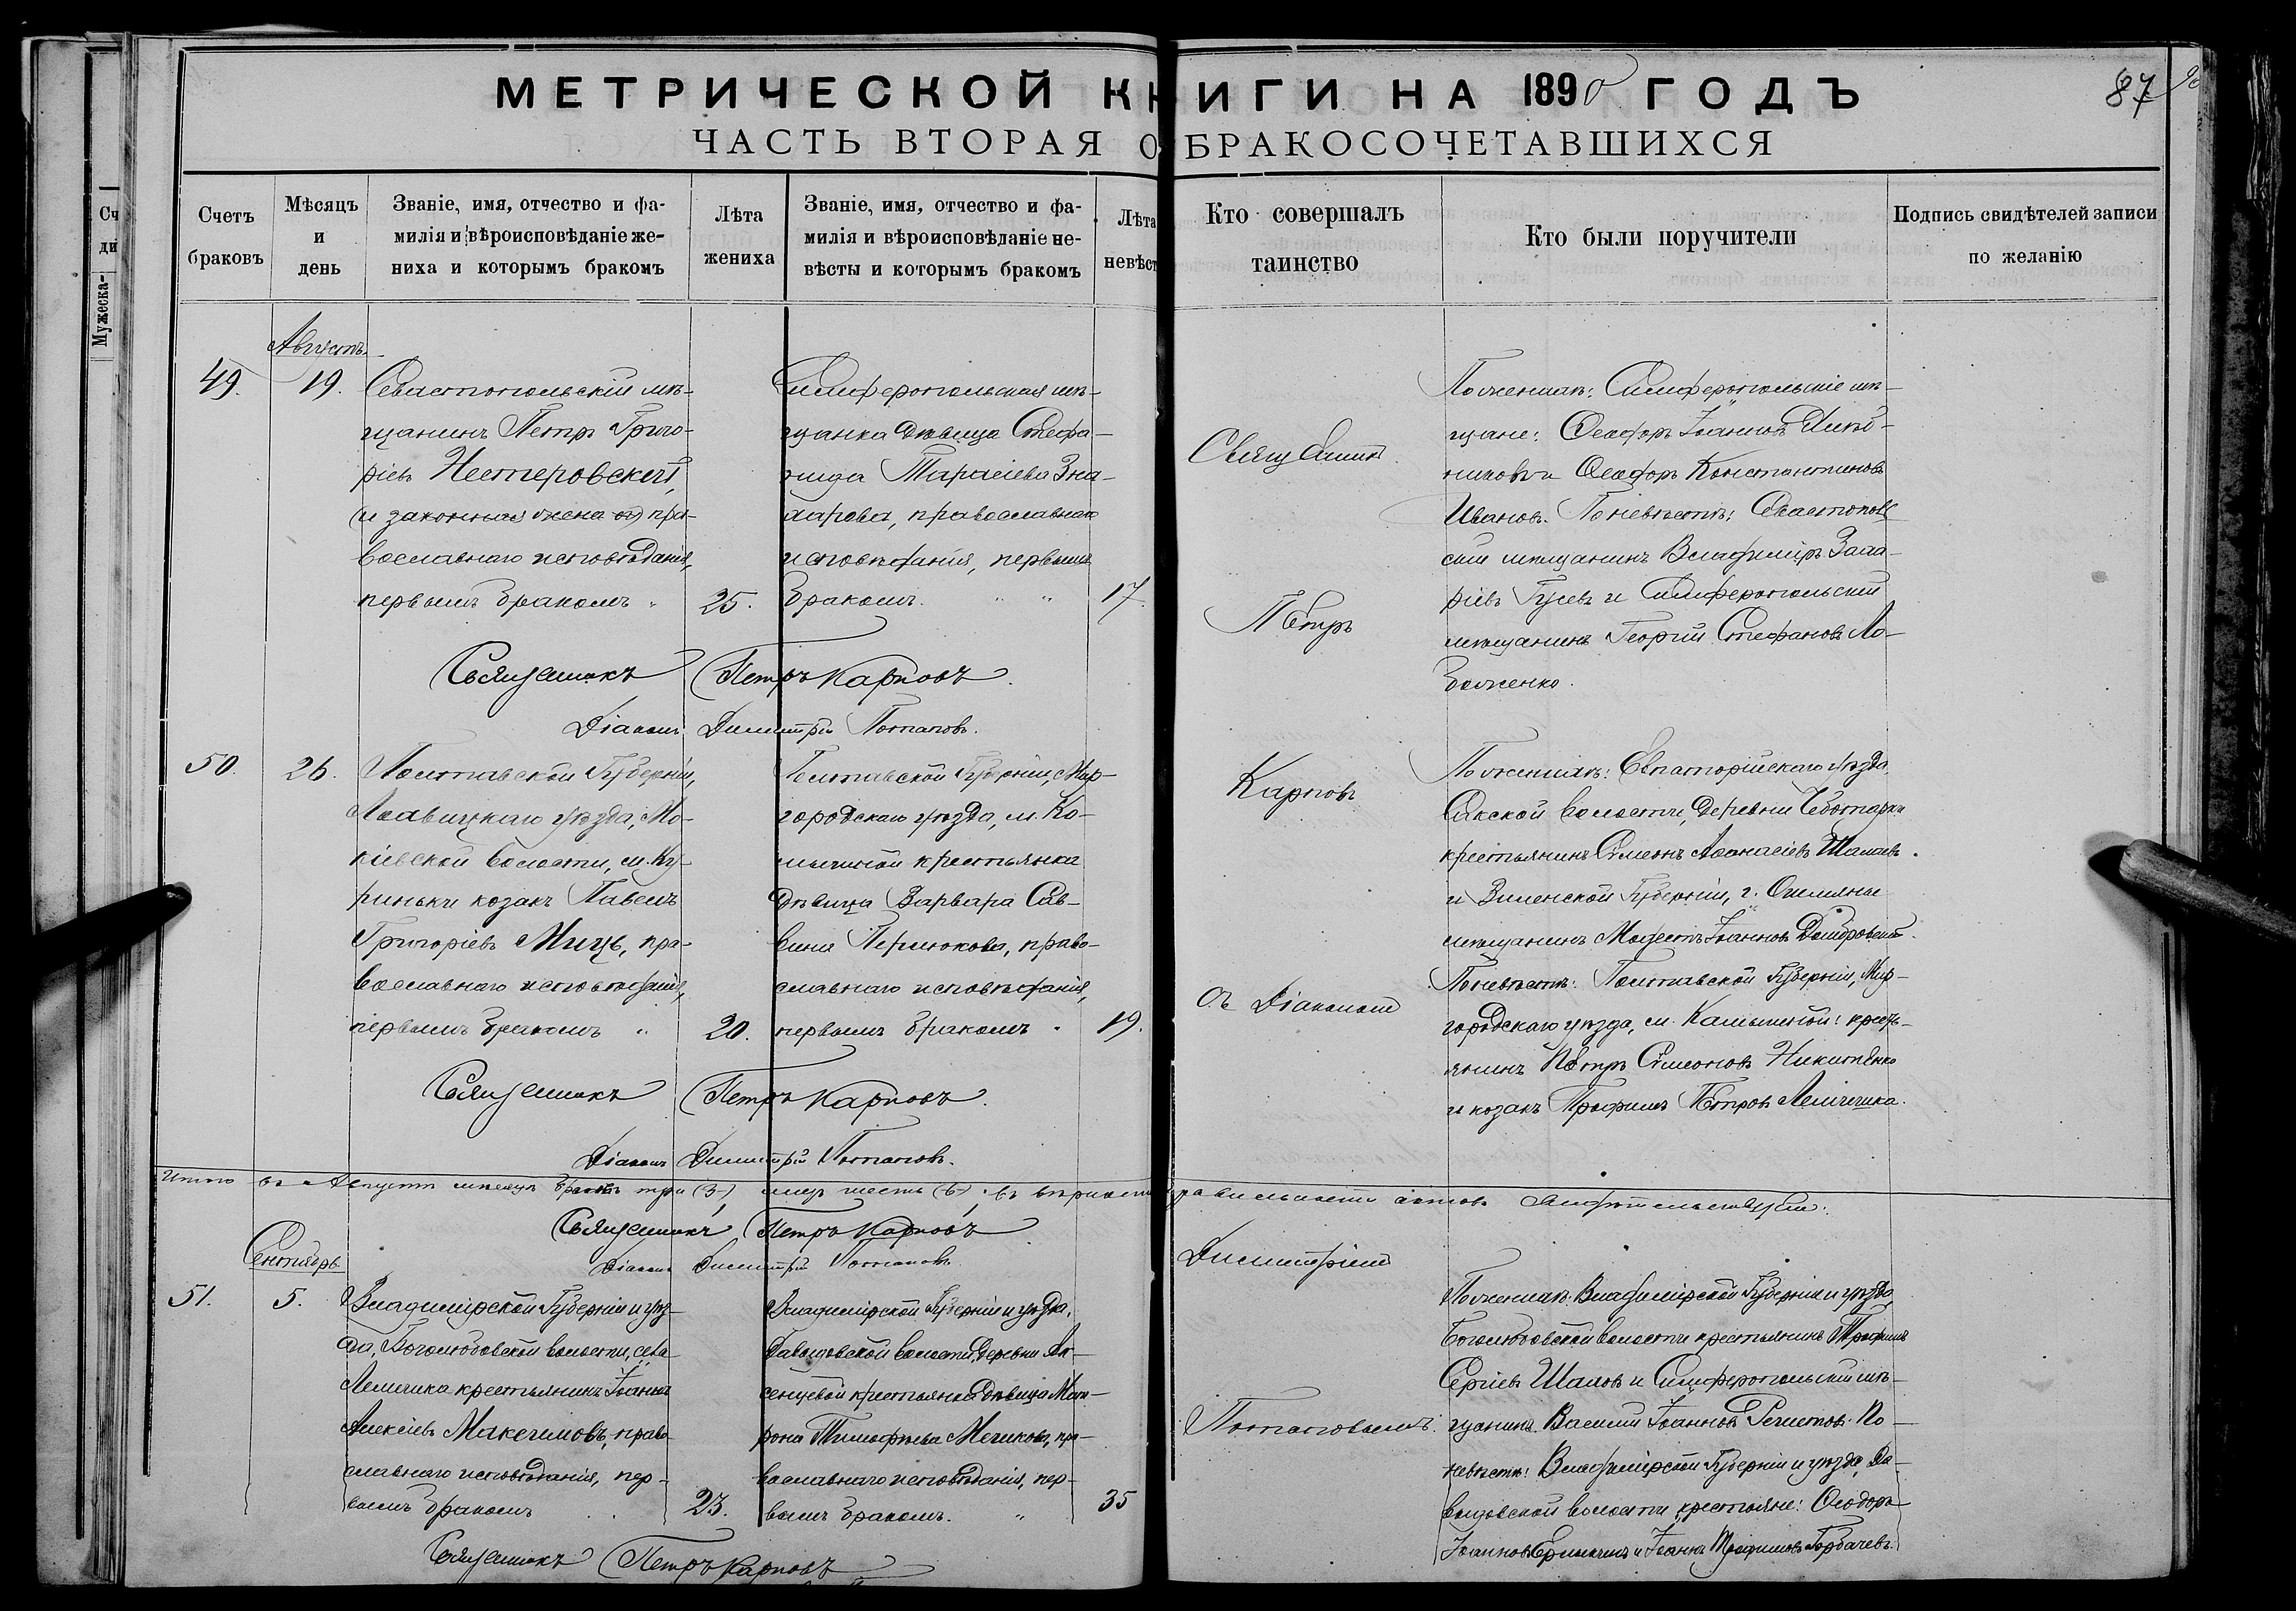 МЕТРИЧЕСКОЙ КНИГИ НА 1890 ГОДЪ
87
ЧАСТЬ ВТОРАЯ О БРАКОСОЧЕТАВШИХСЯ
Счетъ браковъ
Мѣсяцъ и день
Званіе, имя, отчество и фа-
милія и вѣроисповѣданіе же-
ниха и которымъ бракомъ
Лѣта жениха
Званіе, имя, отчество и фа-
милія и вѣроисповѣданіе не-
вѣсты и которымъ бракомъ
Лѣта невѣст
Кто совершалъ таинство
Кто были поручители
Подпись свидѣтелей записи
по желанію
Сч
ди
Мужеска-
Августъ
49. 19.
Севастопольскій мѣ-
щанинъ Петръ Григо-
ріевъ Нестеровскій,
(и законная жена его) пра-
вославнаго исповѣданія,
первымъ бракомъ 25.
Симферопольская мѣ-
щанка дѣвица Стефа-
нида Тарасіева Зна-
харова, православнаго
исповѣданія, первымъ
бракомъ. 17.
Священникъ Петръ Карповъ.
Діаконъ Димитрій Потаповъ.
По женихѣ: Симферопольскіе мѣ-
щане: Ѳеодоръ Іоанновъ
и Ѳеодоръ Константиновъ
Ивановъ. По невѣстѣ: Севастополь
скій мѣщанинъ Владиміръ Заха-
ріевъ Гусевъ и Симферопольскій
мѣщанинъ Георгій Стефановъ Ло-
боженко.
50. 26.
Полтавской Губерніи,
уѣзда, Мо-
кіевской волости, м. Ку-
риньки козакъ Павелъ
Григоріевъ Мицъ, пра-
вославнаго исповѣданія,
первымъ бракомъ 20.
Полтавской Губерніи, Мир-
городскаго уѣзда, м. Ко-
мышной крестьянка
дѣвица Варвара Сав-
вина Пермокова, право-
славнаго исповѣданія,
первымъ бракомъ 19.
Священникъ Петръ Карповъ.
Діаконъ Димитрій Потаповъ.
По женихѣ: Евпаторійскаго уѣзда,
Сакской волости, деревни Чеботарки
крестьянинъ Симеонъ Аѳанасіевъ Шалаевъ.
и Виленской Губерніи, г. Ошмяны
мѣщанинъ Модестъ Іоанновъ Домбровскій.
По невѣстѣ: Полтавской Губерніи, Мир-
городскаго уѣзда, м. Камышной: кресть-
янинъ Петръ Симеоновъ Никитенко
и козакъ Трофимъ Петровъ
Священникъ
Петръ
Карповъ
съ Діакономъ
Димитріемъ
Потаповымъ.
Итого въ Августѣ мѣсяцѣ браковъ три (3), лицъ шесть (6); въ вѣрности и правильности актовъ свидѣтельствуемъ:
Священникъ Петръ Карповъ
Діаконъ Димитрій Потаповъ.
Сентябрь
51. 5.
Владимірской Губерніи и уѣз-
да, Боголюбовской волости, села
Лемешка крестьянинъ Іоаннъ
Алексіевъ Максимовъ, право-
славнаго исповѣданія, пер-
вымъ бракомъ 23.
Владимірской Губерніи и уѣзда,
Давыдовской волости, деревни Ак-
сенцевой крестьянка дѣвица Мат-
рона Тимоѳѣева Мешкова, пра-
вославнаго исповѣданія, пер-
вымъ бракомъ. 35
Священникъ Петръ Карповъ
По женихѣ: Владимірской Губерніи и уѣзда,
Боголюбовской волости крестьянинъ Трофимъ
Сергіевъ Шаловъ и Симферопольскій мѣ-
щанинъ Василій Іоанновъ По
невѣстѣ: Владимірской Губерніи и уѣзда, Да-
выдовской волости крестьяне: Ѳеодоръ
Іоанновъ и Іоаннъ Трофимовъ Горбачевъ.